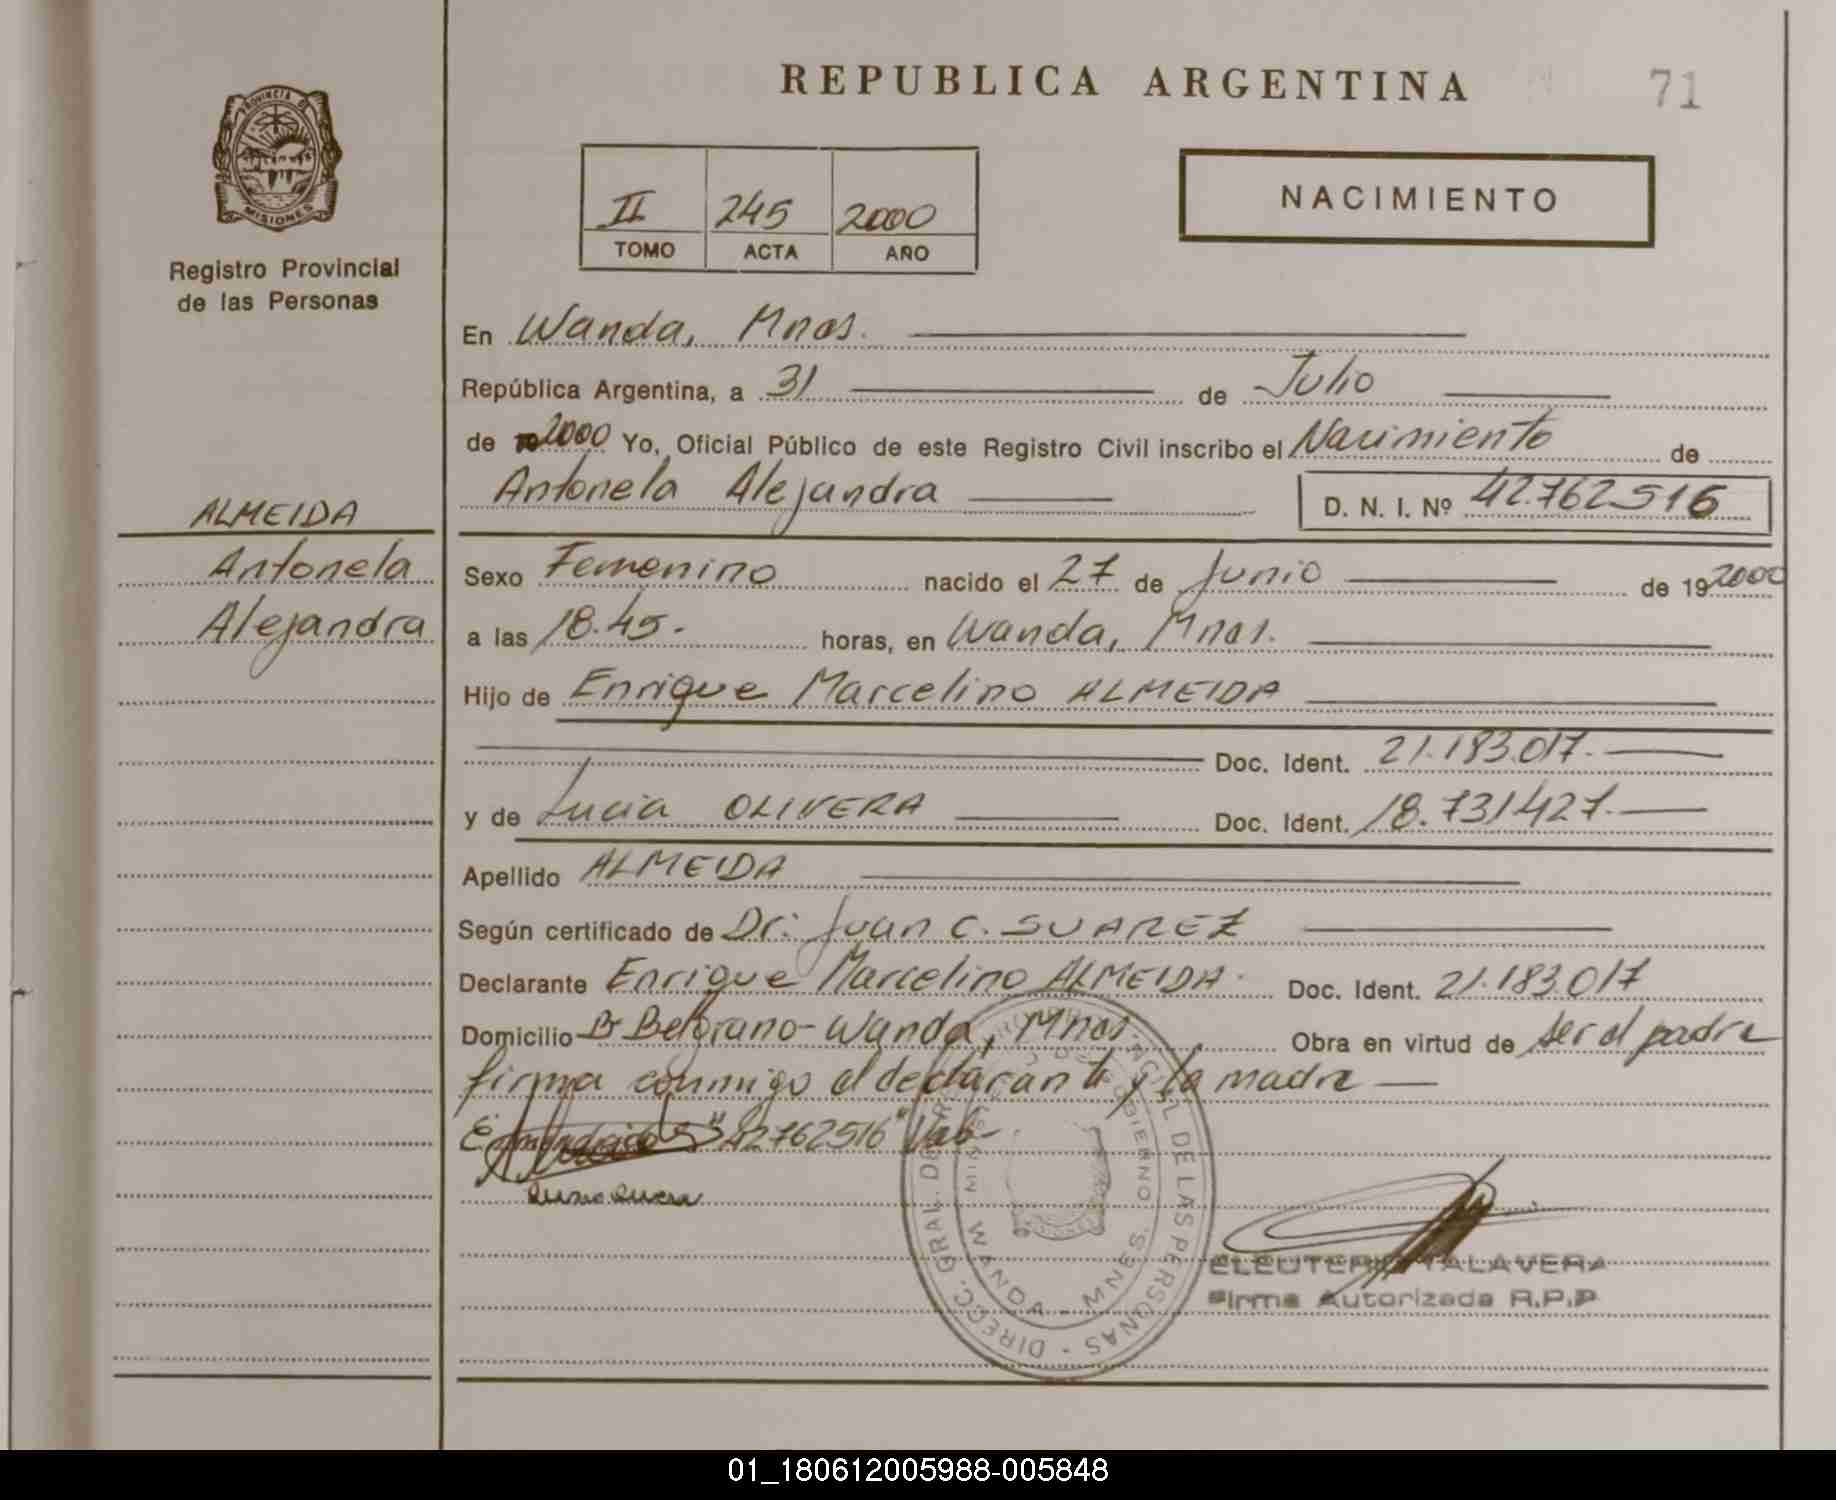 REPUBLICA ARGENTINA
71
PROVINCIA DE
MISIONES
Registro Provincial
de las Personas
II 245 2000
TOMO ACTA AÑO
NACIMIENTO
En Wanda, Mnes.
República Argentina, a 31 de Julio
de 2000 Yo, Oficial Público de este Registro Civil inscribo el Nacimiento de
Antonela Alejandra D. N. I. Nº 42.762516
ALMEIDA
Antonela
Alejandra
Sexo Femenino nacido el 27 de Junio de 19 2000
a las 18.45.- horas, en Wanda, Mnes.
Hijo de Enrique Marcelino ALMEIDA
Doc. Ident. 21.183.017.
y de Lucia OLIVERA Doc. Ident. 18.731427.
Apellido ALMEIDA
Según certificado de Dr. Juan C. SUAREZ
Declarante Enrique Marcelino ALMEIDA Doc. Ident. 21.183.017
Domicilio Bº Belgrano - Wanda, Mnes Obra en virtud de ser el padre
firma conmigo el declarante y la madre
Enmendado "42762516" Vale-
DIRECC. GRAL. DEL REG. PROVINCIAL DE LAS PERSONAS
WANDA - MNES.
ELEUTERIO TALAVERA
Firma Autorizada R.P.P
01_180612005988-005848